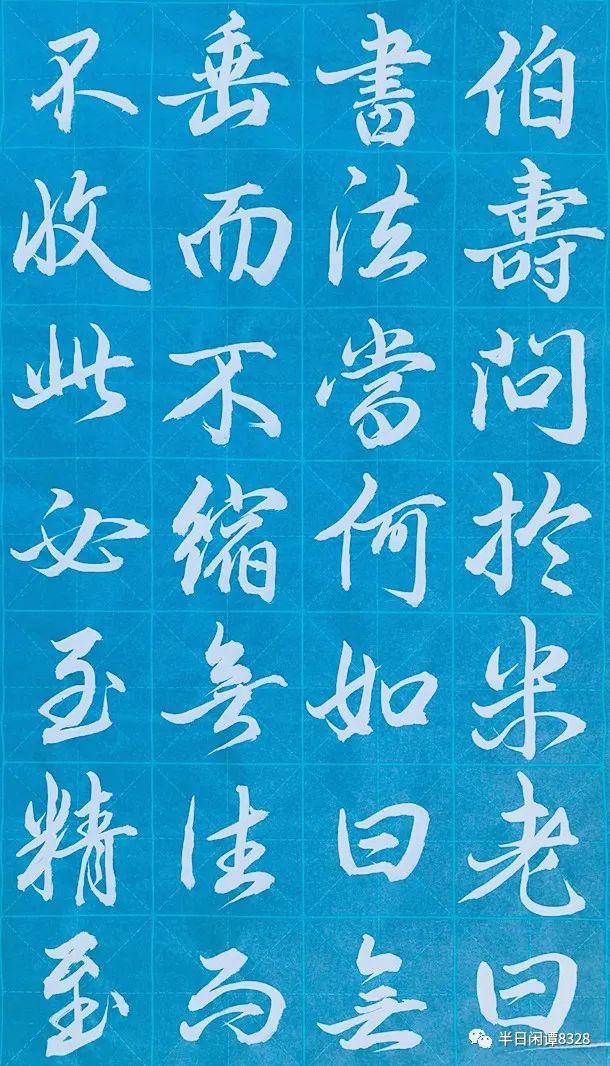 伯壽問於米老曰
書法當何如曰無
垂而不縮無往而
不收此必至精至
半日闲谭8328